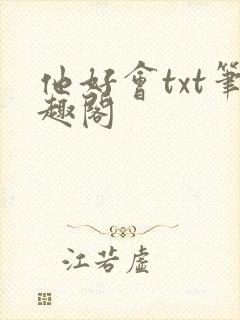 他好會txt筆
趣閣
江若虛